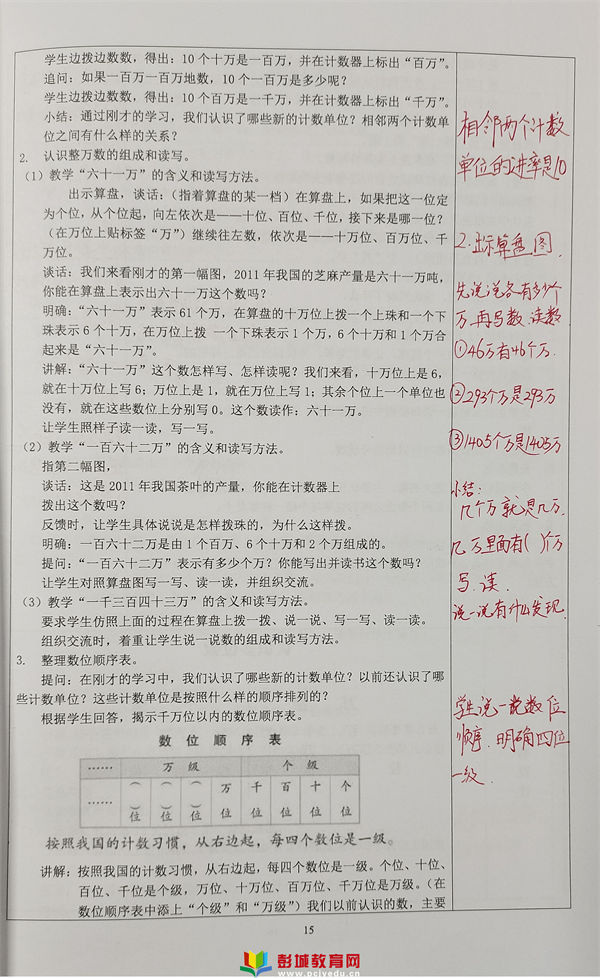 学生边拨边数数，得出：10 个十万是一百万，并在计数器上标出“百万”。
追问：如果一百万一百万地数，10 个一百万是多少呢？
学生边拨边数数，得出：10 个百万是一千万，并在计数器上标出“千万”。
小结：通过刚才的学习，我们认识了哪些新的计数单位？相邻两个计数单
位之间有什么样的关系？
2. 认识整万数的组成和读写。
（1）教学“六十一万”的含义和读写方法。
出示算盘，谈话：（指着算盘的某一档）在算盘上，如果把这一位定
为个位，从个位起，向左依次是——十位、百位、千位，接下来是哪一位？
（在万位上贴标签“万”）继续往左数，依次是——十万位、百万位、千
万位。
谈话：我们来看刚才的第一幅图，2011 年我国的芝麻产量是六十一万吨，
你能在算盘上表示出六十一万这个数吗？
明确：“六十一万”表示 61 个万，在算盘的十万位上拨一个上珠和一个下
珠表示 6 个十万，在万位上拨 一个下珠表示 1 个万，6 个十万和 1 个万合
起来是“六十一万”。
讲解：“六十一万”这个数怎样写、怎样读呢？我们来看，十万位上是 6，
就在十万位上写 6；万位上是 1，就在万位上写 1；其余个位上一个单位也
没有，就在这些数位上分别写 0。这个数读作：六十一万。
让学生照样子读一读，写一写。
（2）教学“一百六十二万”的含义和读写方法。
指第二幅图，
谈话：这是 2011 年我国茶叶的产量，你能在计数器上
拨出这个数吗？
反馈时，让学生具体说说是怎样拨珠的，为什么这样拨。
明确：一百六十二万是由 1 个百万、6 个十万和 2 个万组成的。
提问：“一百六十二万”表示有多少个万？你能写出并读书这个数吗？
让学生对照算盘图写一写、读一读，并组织交流。
（3）教学“一千三百四十三万”的含义和读写方法。
要求学生仿照上面的过程在算盘上拨一拨、说一说、写一写、读一读。
组织交流时，着重让学生说一说数的组成和读写方法。
3. 整理数位顺序表。
提问：在刚才的学习中，我们认识了哪些新的计数单位？以前还认识了哪
些计数单位？这些计数单位是按照什么样的顺序排列的？
根据学生回答，揭示千万位以内的数位顺序表。
数 位 顺 序 表
…… 万 级 个 级
…… （ ）位 （ ）位 （ ）位 万位 千位 百位 十位 个位
按照我国的计数习惯，从右边起，每四个数位是一级。
讲解：按照我国的计数习惯，从右边起，每四个数位是一级。个位、十位、
百位、千位是个级，万位、十万位、百万位、千万位是万级。（在
数位顺序表中添上“个级”和“万级”）我们以前认识的数，主要
相邻两个计数
单位的进率是10
2.出示算盘图.
先说说各有多少个
万,再写数、读数
①46万有46个万.
②293个万是293万
③1405个万是1405万
小结:
几个万就是几万.
几万里面有( )个万
写、读.
说一说有什么发现.
学生说一说数位
顺序.明确四位
一级.
15
彭城教育网
www.pcjyedu.cn